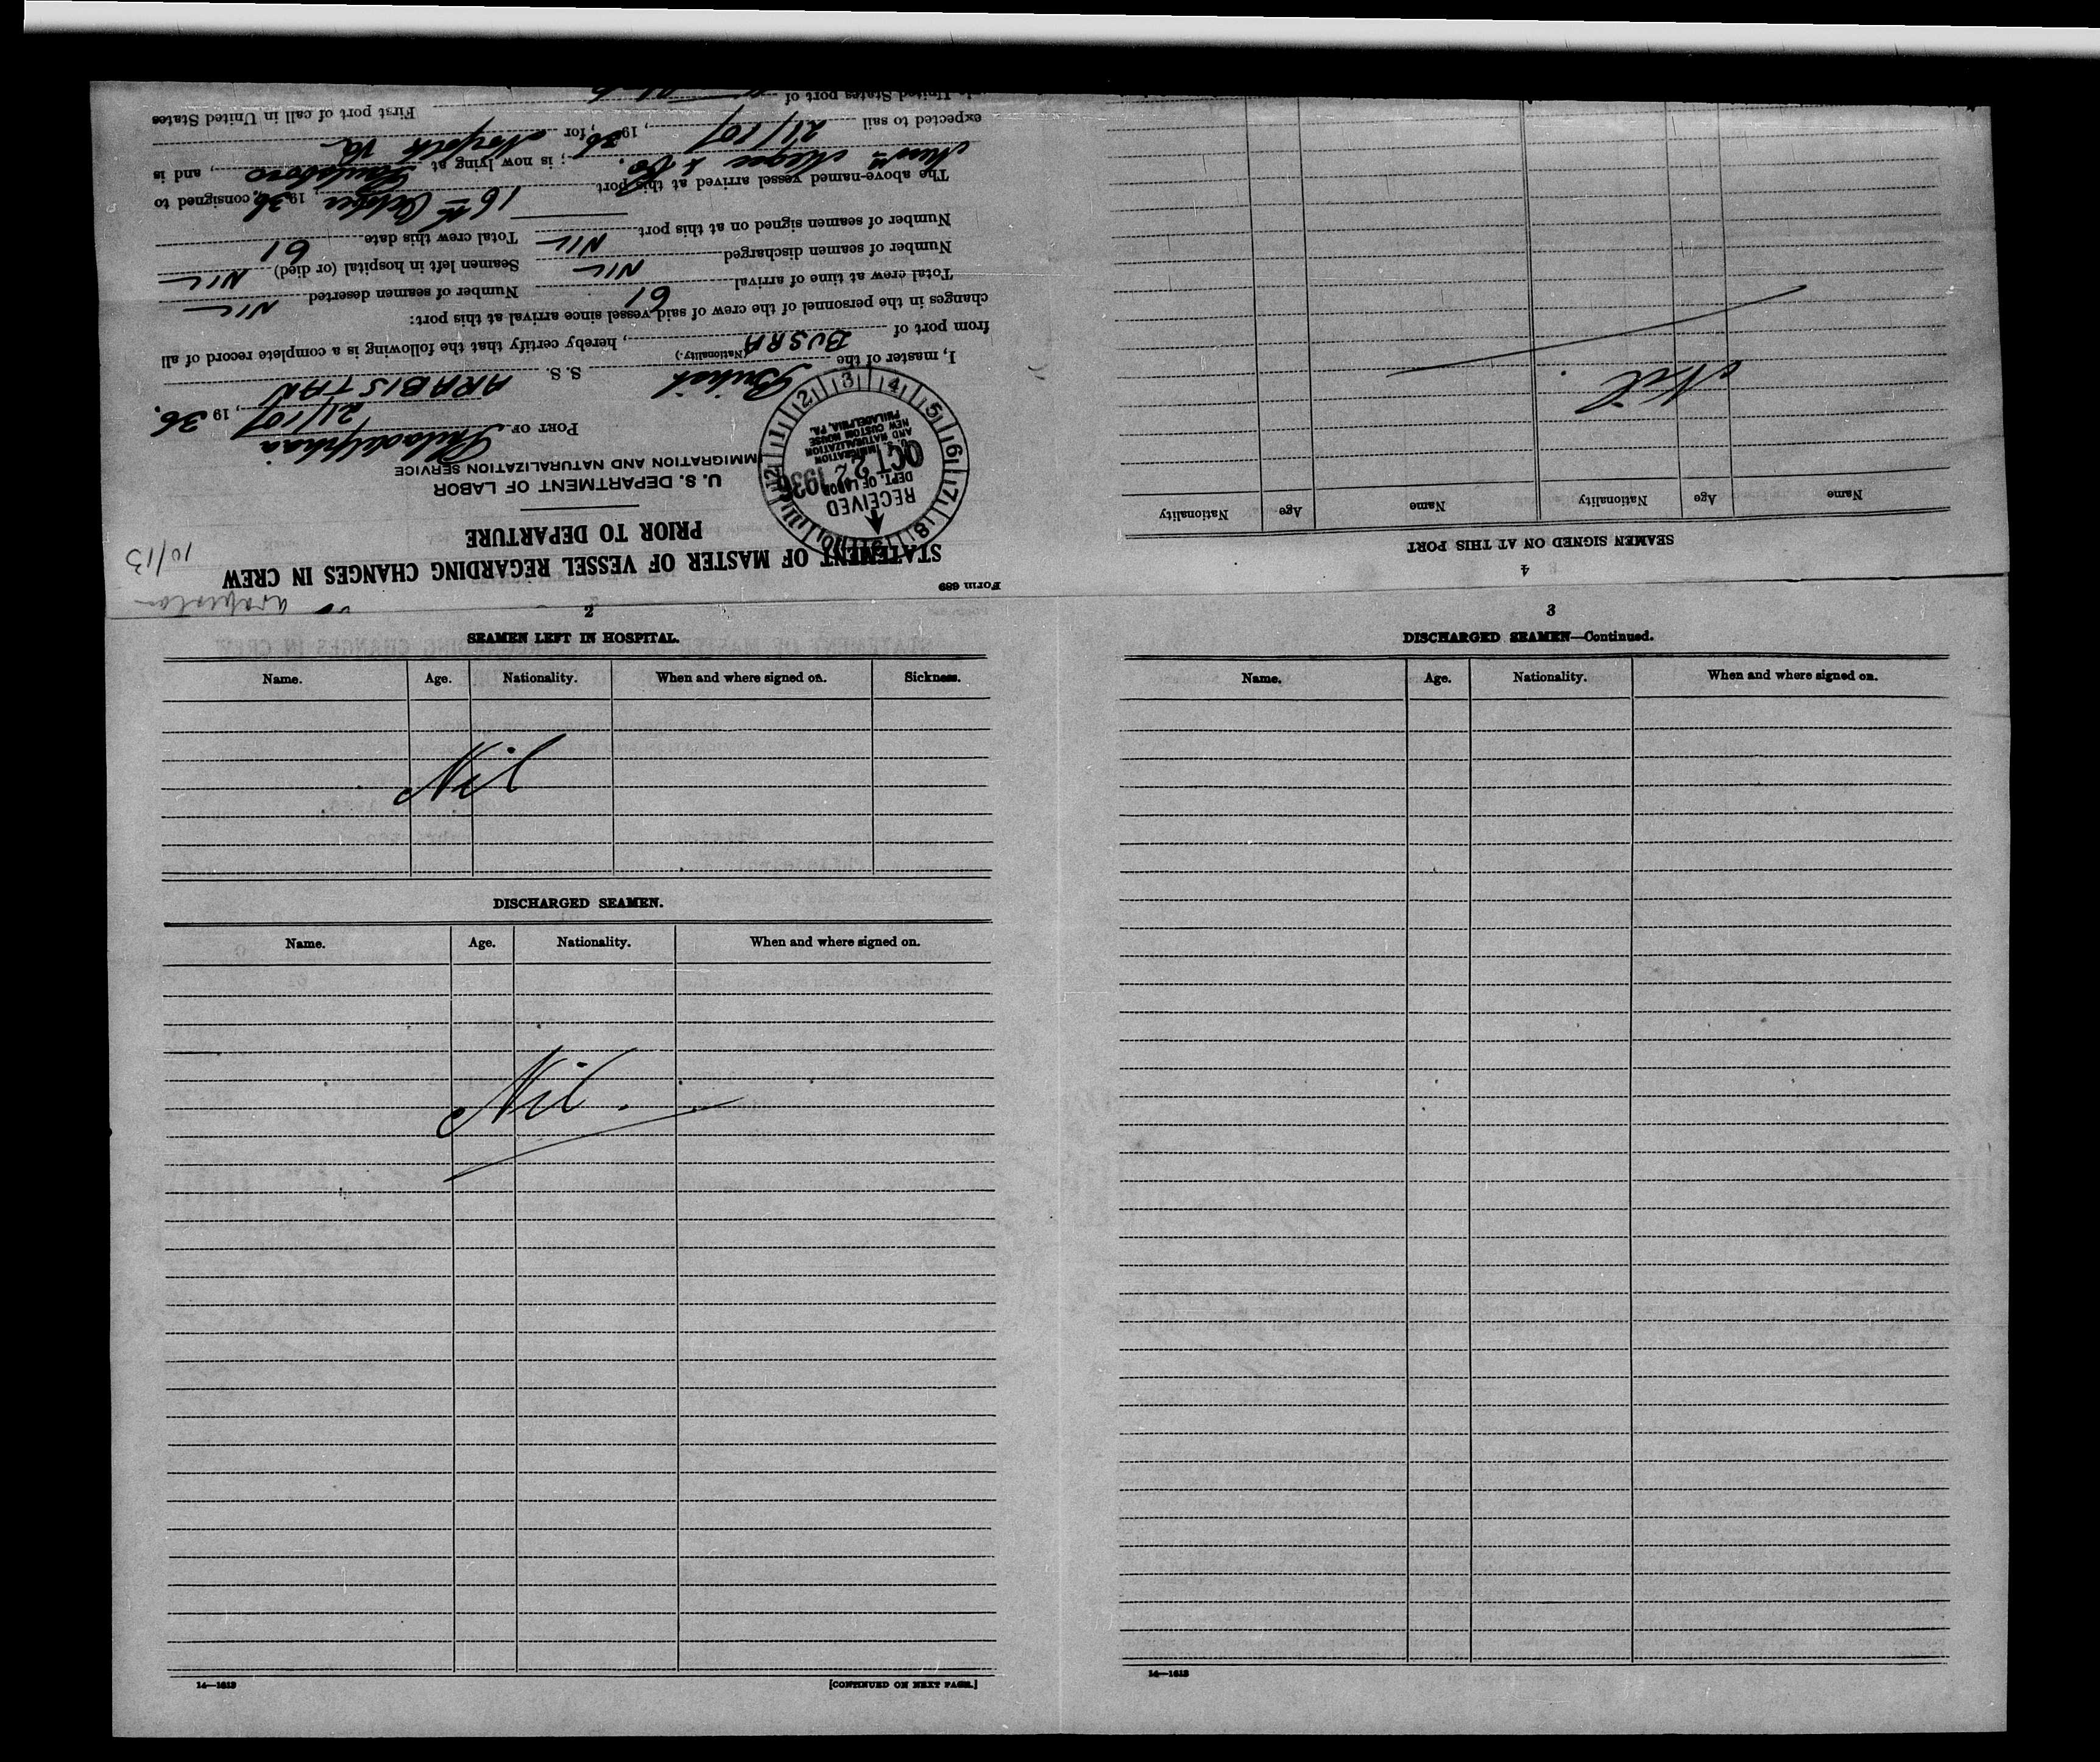 Form 689
STATEMENT OF MASTER OF VESSEL REGARDING CHANGES IN CREW
PRIOR TO DEPARTURE
10/13
U. S. DEPARTMENT OF LABOR
IMMIGRATION AND NATURALIZATION SERVICE
RECEIVED
DEPT. OF LABOR
OCT 22 1936
U.S. IMMIGRATION
AND NATURALIZATION
NEW CUSTOM HOUSE
PHILADELPHIA, PA.
12 1 2 3 4 5 6 7 8 9 10 11
PORT OF Philadelphia
21/10/, 1936.
I, master of the British S. S. ARABISTAN
(Nationality.)
from port of BUSRA, hereby certify that the following is a complete record of all
changes in the personnel of the crew of said vessel since arrival at this port:
Total crew at time of arrival 61 Number of seamen deserted NIL
Number of seamen discharged NIL Seamen left in hospital (or died) NIL
Number of seamen signed on at this port NIL Total crew this date 61
The above-named vessel arrived at this port 16th October, 1936, consigned to
& Co.; is now lying at Paulsboro, and is
expected to sail 21/10/, 1936, for Norfolk Va
United States port of First port of call in United States
4
SEAMEN SIGNED ON AT THIS PORT
Name Age Nationality Name Age Nationality
Nil.
2
SEAMEN LEFT IN HOSPITAL.
Name. Age. Nationality. When and where signed on. Sickness.
Nil
DISCHARGED SEAMEN.
Name. Age. Nationality. When and where signed on.
Nil.
14—1613
[CONTINUED ON NEXT PAGE.]
3
DISCHARGED SEAMEN—Continued.
Name. Age. Nationality. When and where signed on.
14—1613